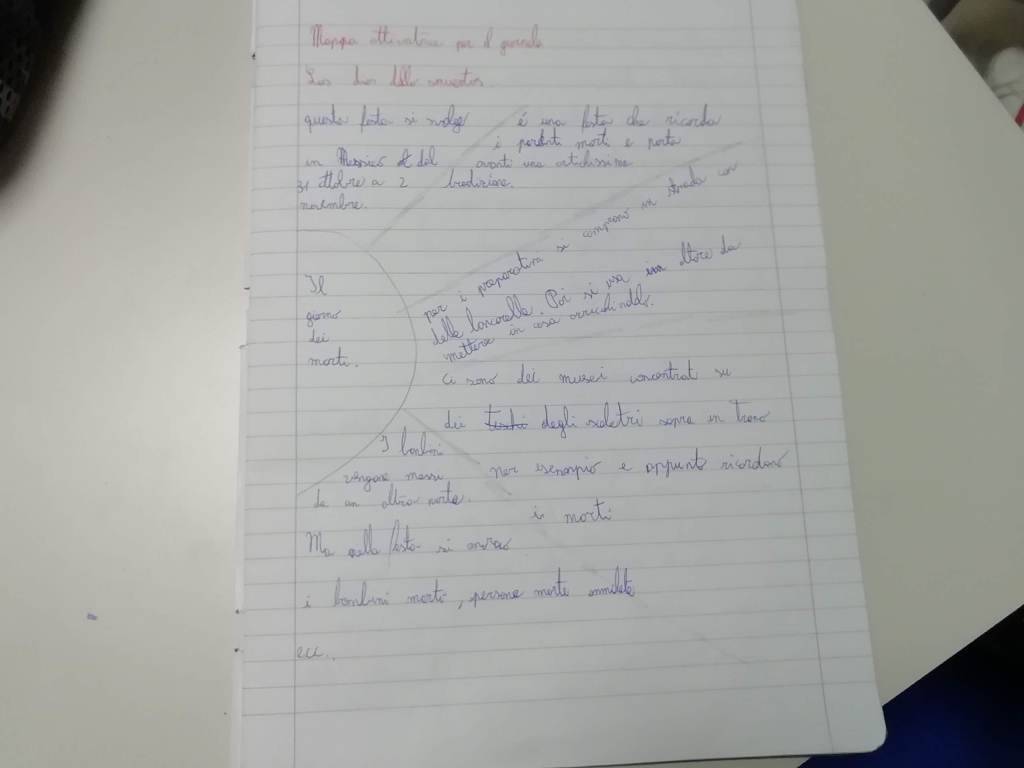 Mappa attivatrice per il giornale
Los dias delle muertos.
questa festa si svolge
in Messico dal
31 ottobre a 2
novembre.
è una festa che ricorda
i parenti morti e porta
avanti una antichissima
tradizione.
per i preparativi si comprano in strada con
delle bancarelle. Poi si usa altare da
mettere in casa
Il
giorno
dei
morti.
Ci sono dei musei concentrat su
dei degli scheletri sopra un trono
per esempio e appunto ricordano
i morti
I bambini
vengono messi
da un altra parte.
Ma nella festa si
i bambini morti, persone morte ammalate
ecc..